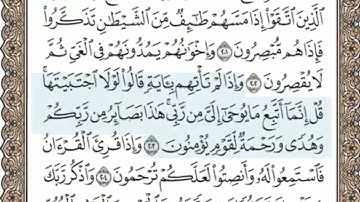 ٱلَّذِينَ ٱتَّقَوْا۟ إِذَا مَسَّهُمْ طَٰٓئِفٌ مِّنَ ٱلشَّيْطَٰنِ تَذَكَّرُوا۟
فَإِذَا هُم مُّبْصِرُونَ ٢٠١ وَإِخْوَٰنُهُمْ يَمُدُّونَهُمْ فِى ٱلْغَىِّ ثُمَّ
لَا يُقْصِرُونَ ٢٠٢ وَإِذَا لَمْ تَأْتِهِم بِـَٔايَةٍ قَالُوا۟ لَوْلَا ٱجْتَبَيْتَهَا ۚ
قُلْ إِنَّمَآ أَتَّبِعُ مَا يُوحَىٰٓ إِلَىَّ مِن رَّبِّى ۚ هَٰذَا بَصَآئِرُ مِن رَّبِّكُمْ
وَهُدًى وَرَحْمَةٌ لِّقَوْمٍ يُؤْمِنُونَ ٢٠٣ وَإِذَا قُرِئَ ٱلْقُرْءَانُ
فَٱسْتَمِعُوا۟ لَهُۥ وَأَنصِتُوا۟ لَعَلَّكُمْ تُرْحَمُونَ ٢٠٤ وَٱذْكُر رَّبَّكَ